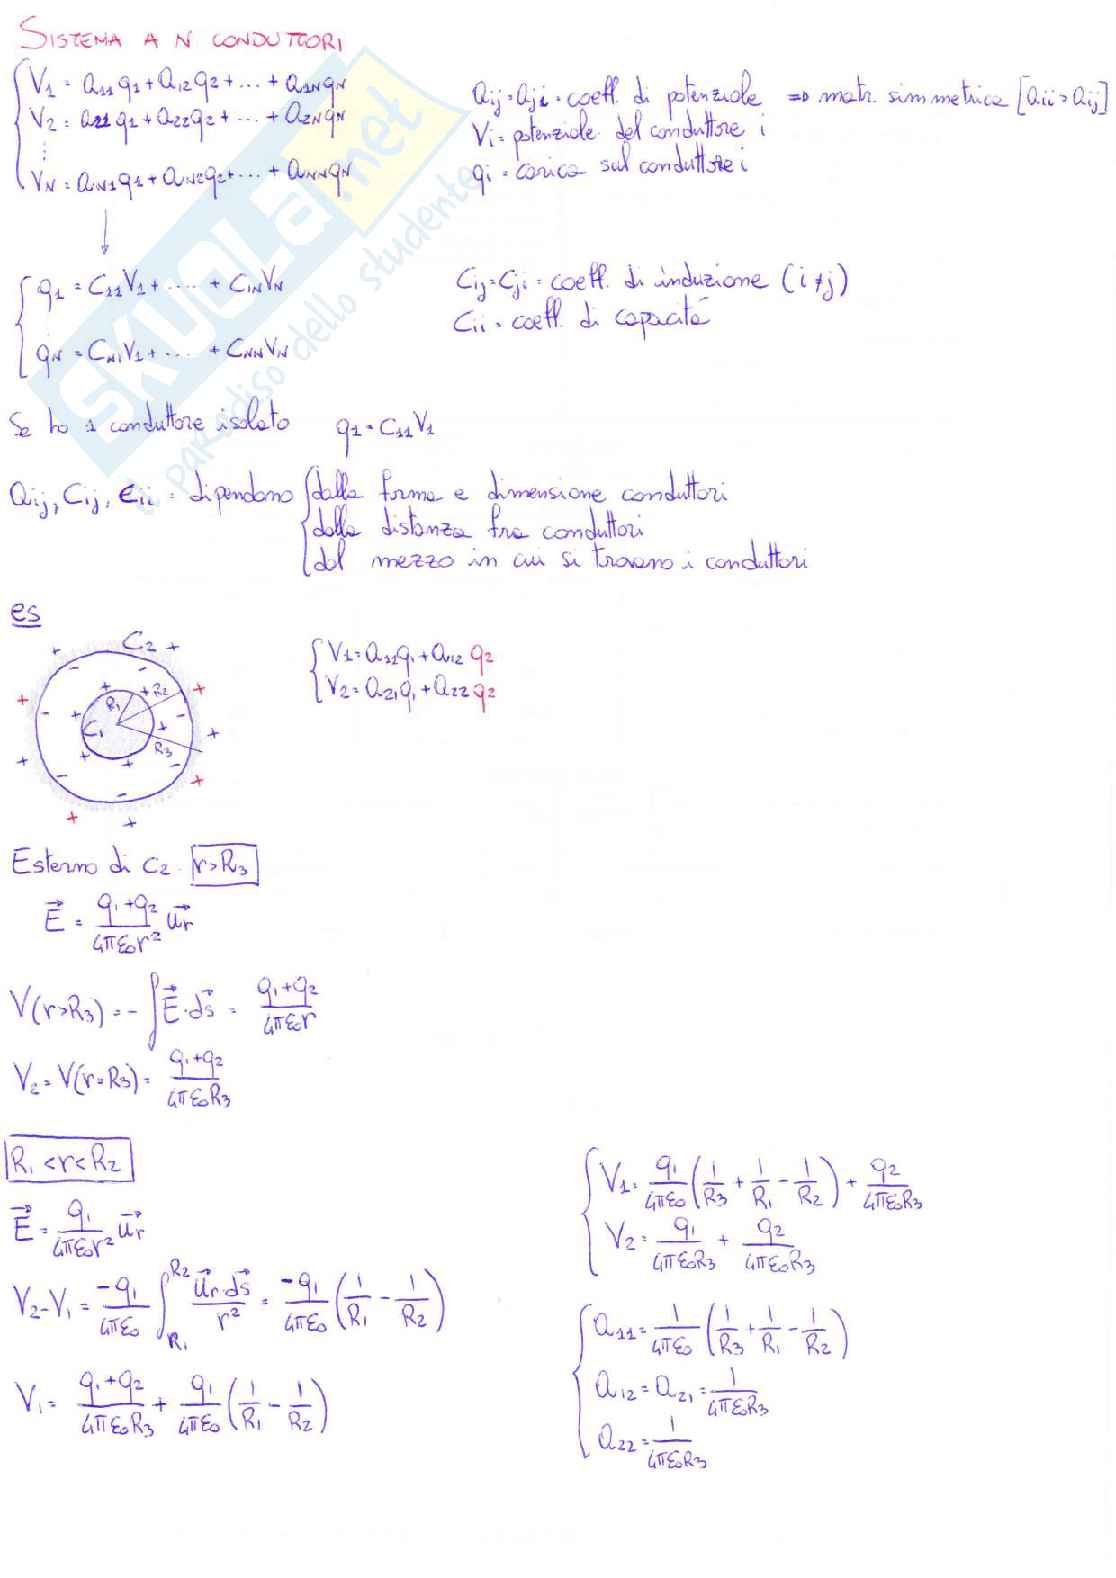 SISTEMA A N CONDUTTORI
V1 = a11q1 + a12q2 + ... + a1NqN
V2 = a21q1 + a22q2 + ... + a2NqN
⋮
VN = aN1q1 + aN2q2 + ... + aNNqN
aij = aji = coeff. di potenziale => matr. simmetrica [aii > aij]
Vi = potenziale del conduttore i
qi = carica sul conduttore i
↓
q1 = C11V1 + ..... + C1NVN
qN = CN1V1 + .... + CNNVN
Cij = Cji = coeff. di induzione (i≠j)
Cii = coeff. di capacità
Se ho 1 conduttore isolato q1 = C11V1
aij, Cij, Cii = dipendono { dalla forma e dimensione conduttori
dalla distanza fra conduttori
dal mezzo in cui si trovano i conduttori
es
C2
R1 R2
C1
R3
V1 = a11q1 + a12 q2
V2 = a21q1 + a22 q2
Esterno di C2. r>R3
E⃗ = (q1+q2)/(4πε0r²) u⃗r
V(r>R3) = -∫E⃗·ds⃗ = (q1+q2)/(4πε0r)
V2 = V(r=R3) = (q1+q2)/(4πε0R3)
R1<r<R2
E⃗ = q1/(4πε0r²) u⃗r
V2-V1 = -q1/(4πε0) ∫R1^R2 u⃗r·ds⃗/r² = -q1/(4πε0) (1/R1 - 1/R2)
V1 = (q1+q2)/(4πε0R3) + q1/(4πε0) (1/R1 - 1/R2)
V1 = q1/(4πε0) (1/R3 + 1/R1 - 1/R2) + q2/(4πε0R3)
V2 = q1/(4πε0R3) + q2/(4πε0R3)
a11 = 1/(4πε0) (1/R3 + 1/R1 - 1/R2)
a12 = a21 = 1/(4πε0R3)
a22 = 1/(4πε0R3)
SKUOLA.net
il paradiso dello studente